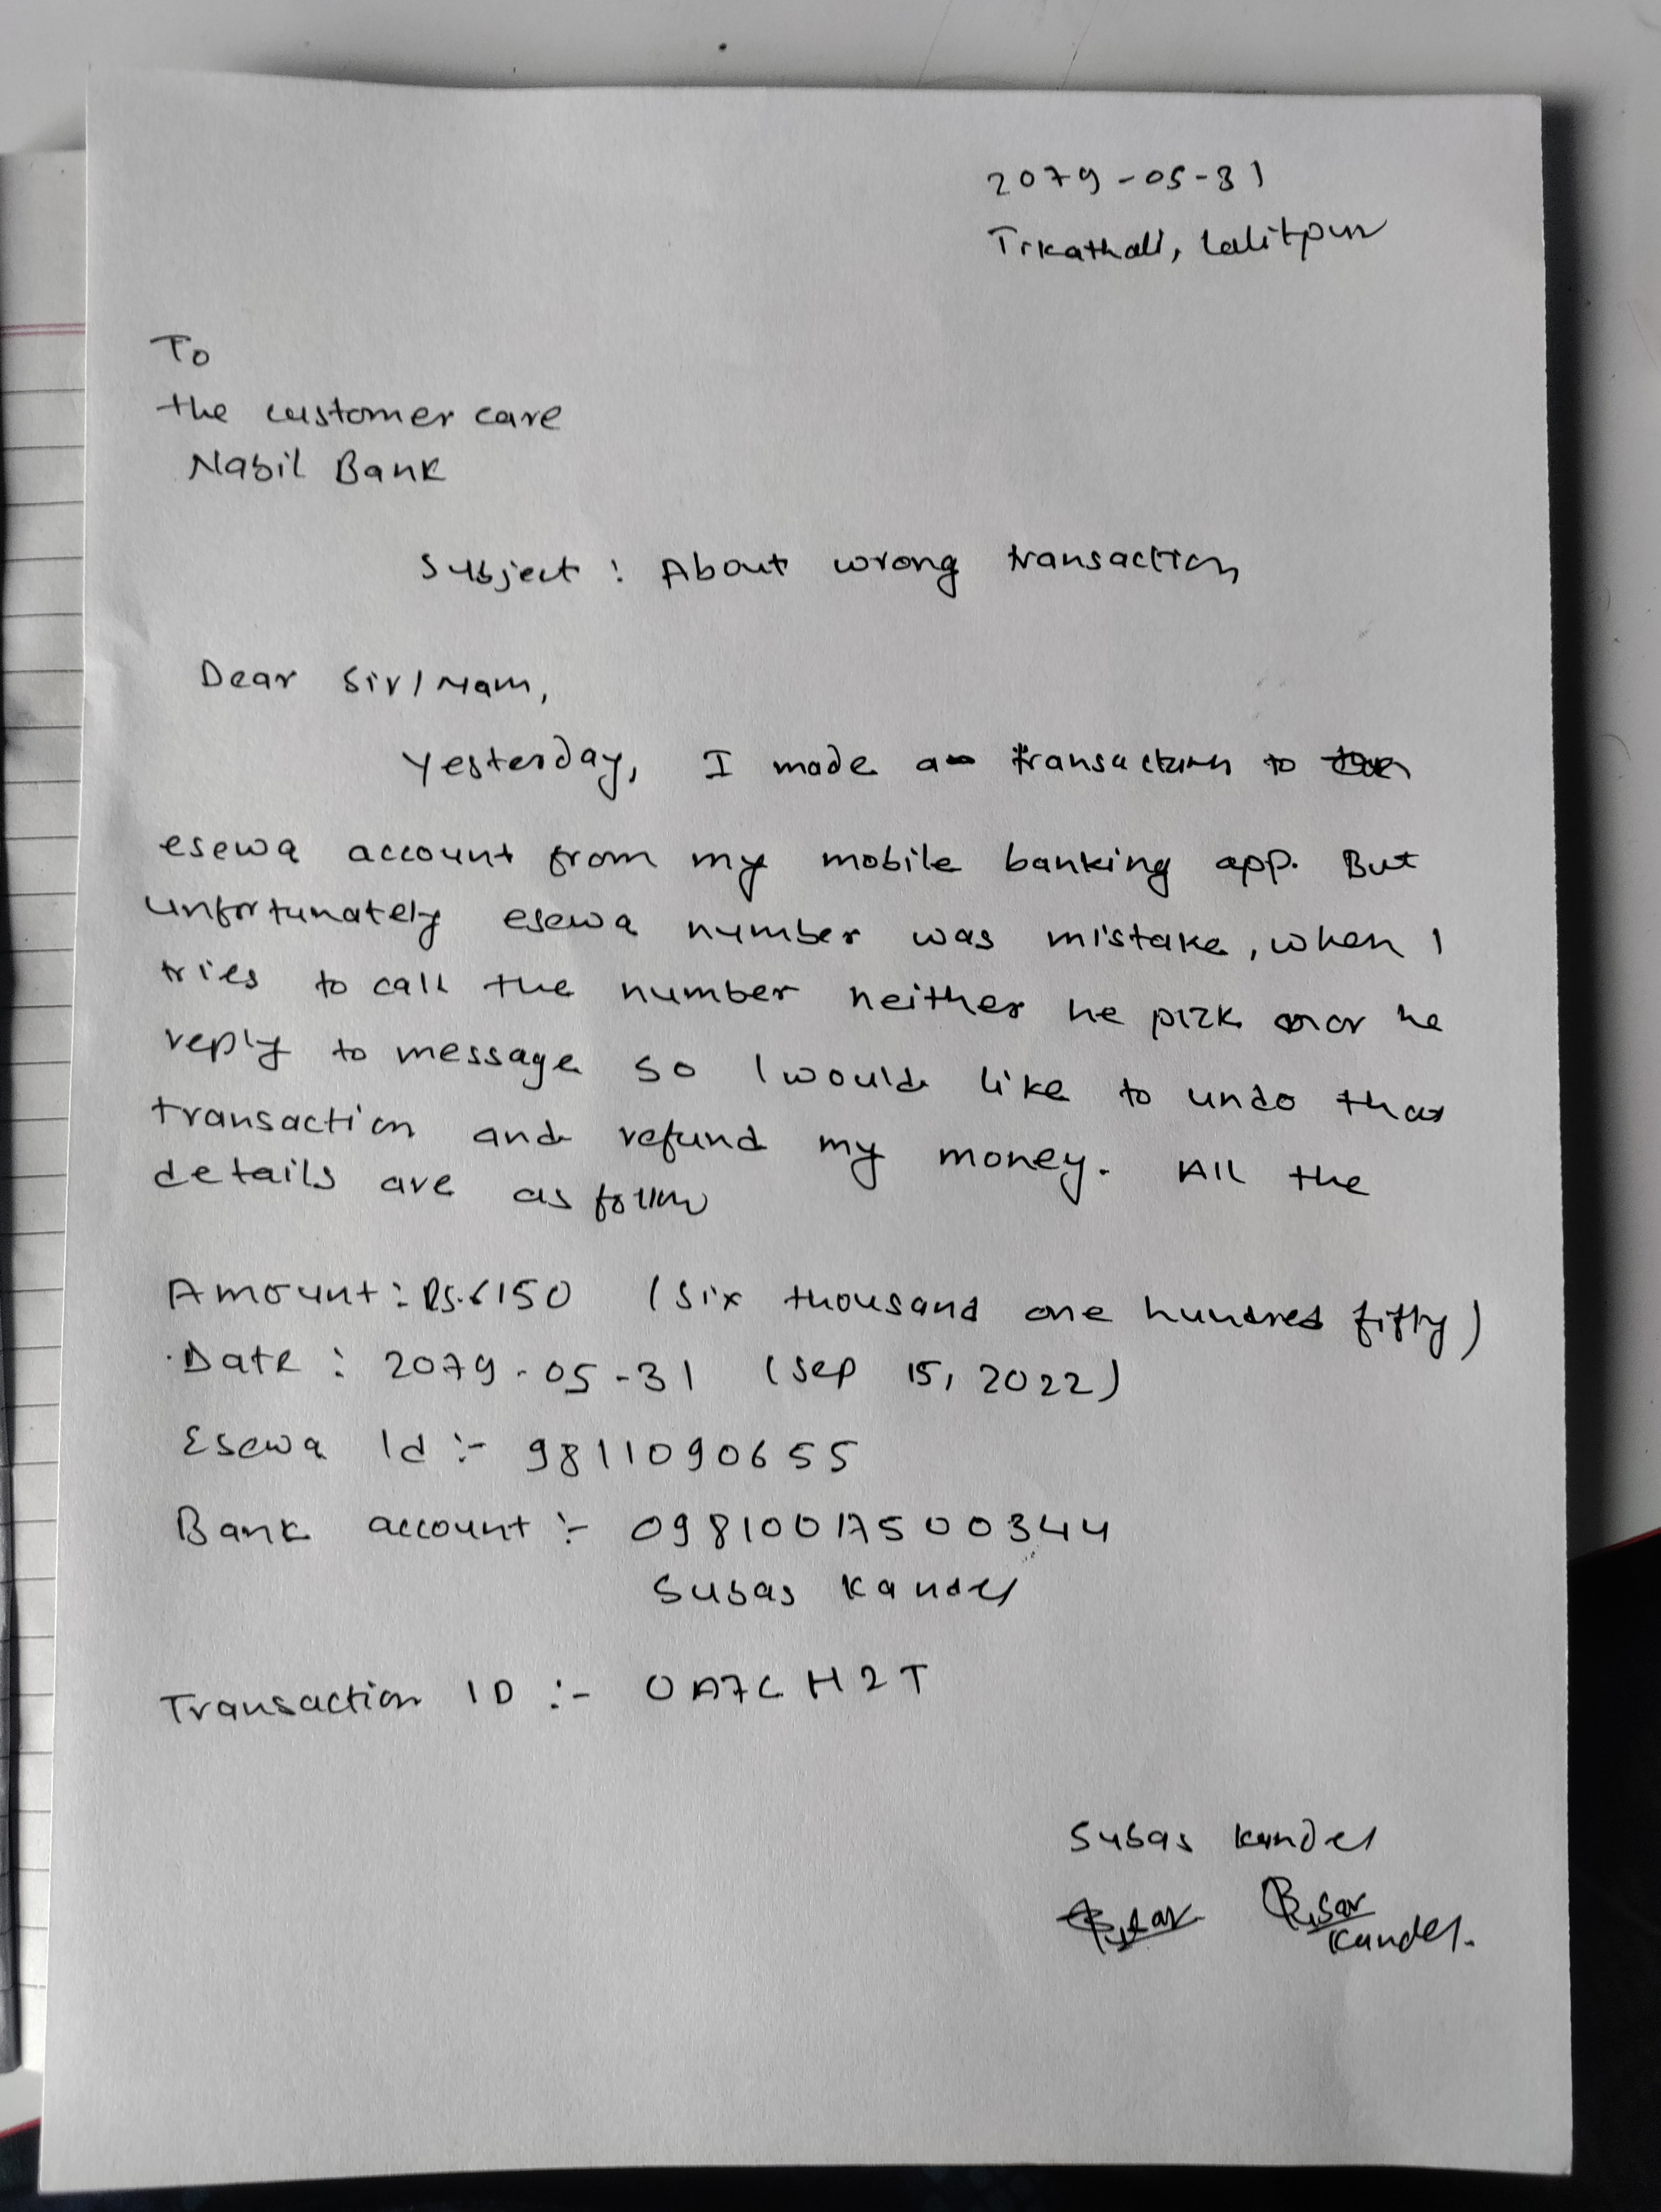 2079-05-31
Tikathali, Lalitpur
To
the customer care
Nabil Bank
Subject : About wrong transaction
Dear Sir/Mam,
Yesterday, I made a transaction to
esewa account from my mobile banking app. But
unfortunately esewa number was mistake, when I
tries to call the number neither he pick nor he
reply to message so I would like to undo that
transaction and refund my money. All the
details are as follow
Amount: Rs.6150 (six thousand one hundred fifty)
Date : 2079-05-31 (Sep 15, 2022)
Esewa Id :- 9811090655
Bank account :-
Subas Kandel
Transaction ID :- 0A7CH2T
Subas Kandel
Kandel.